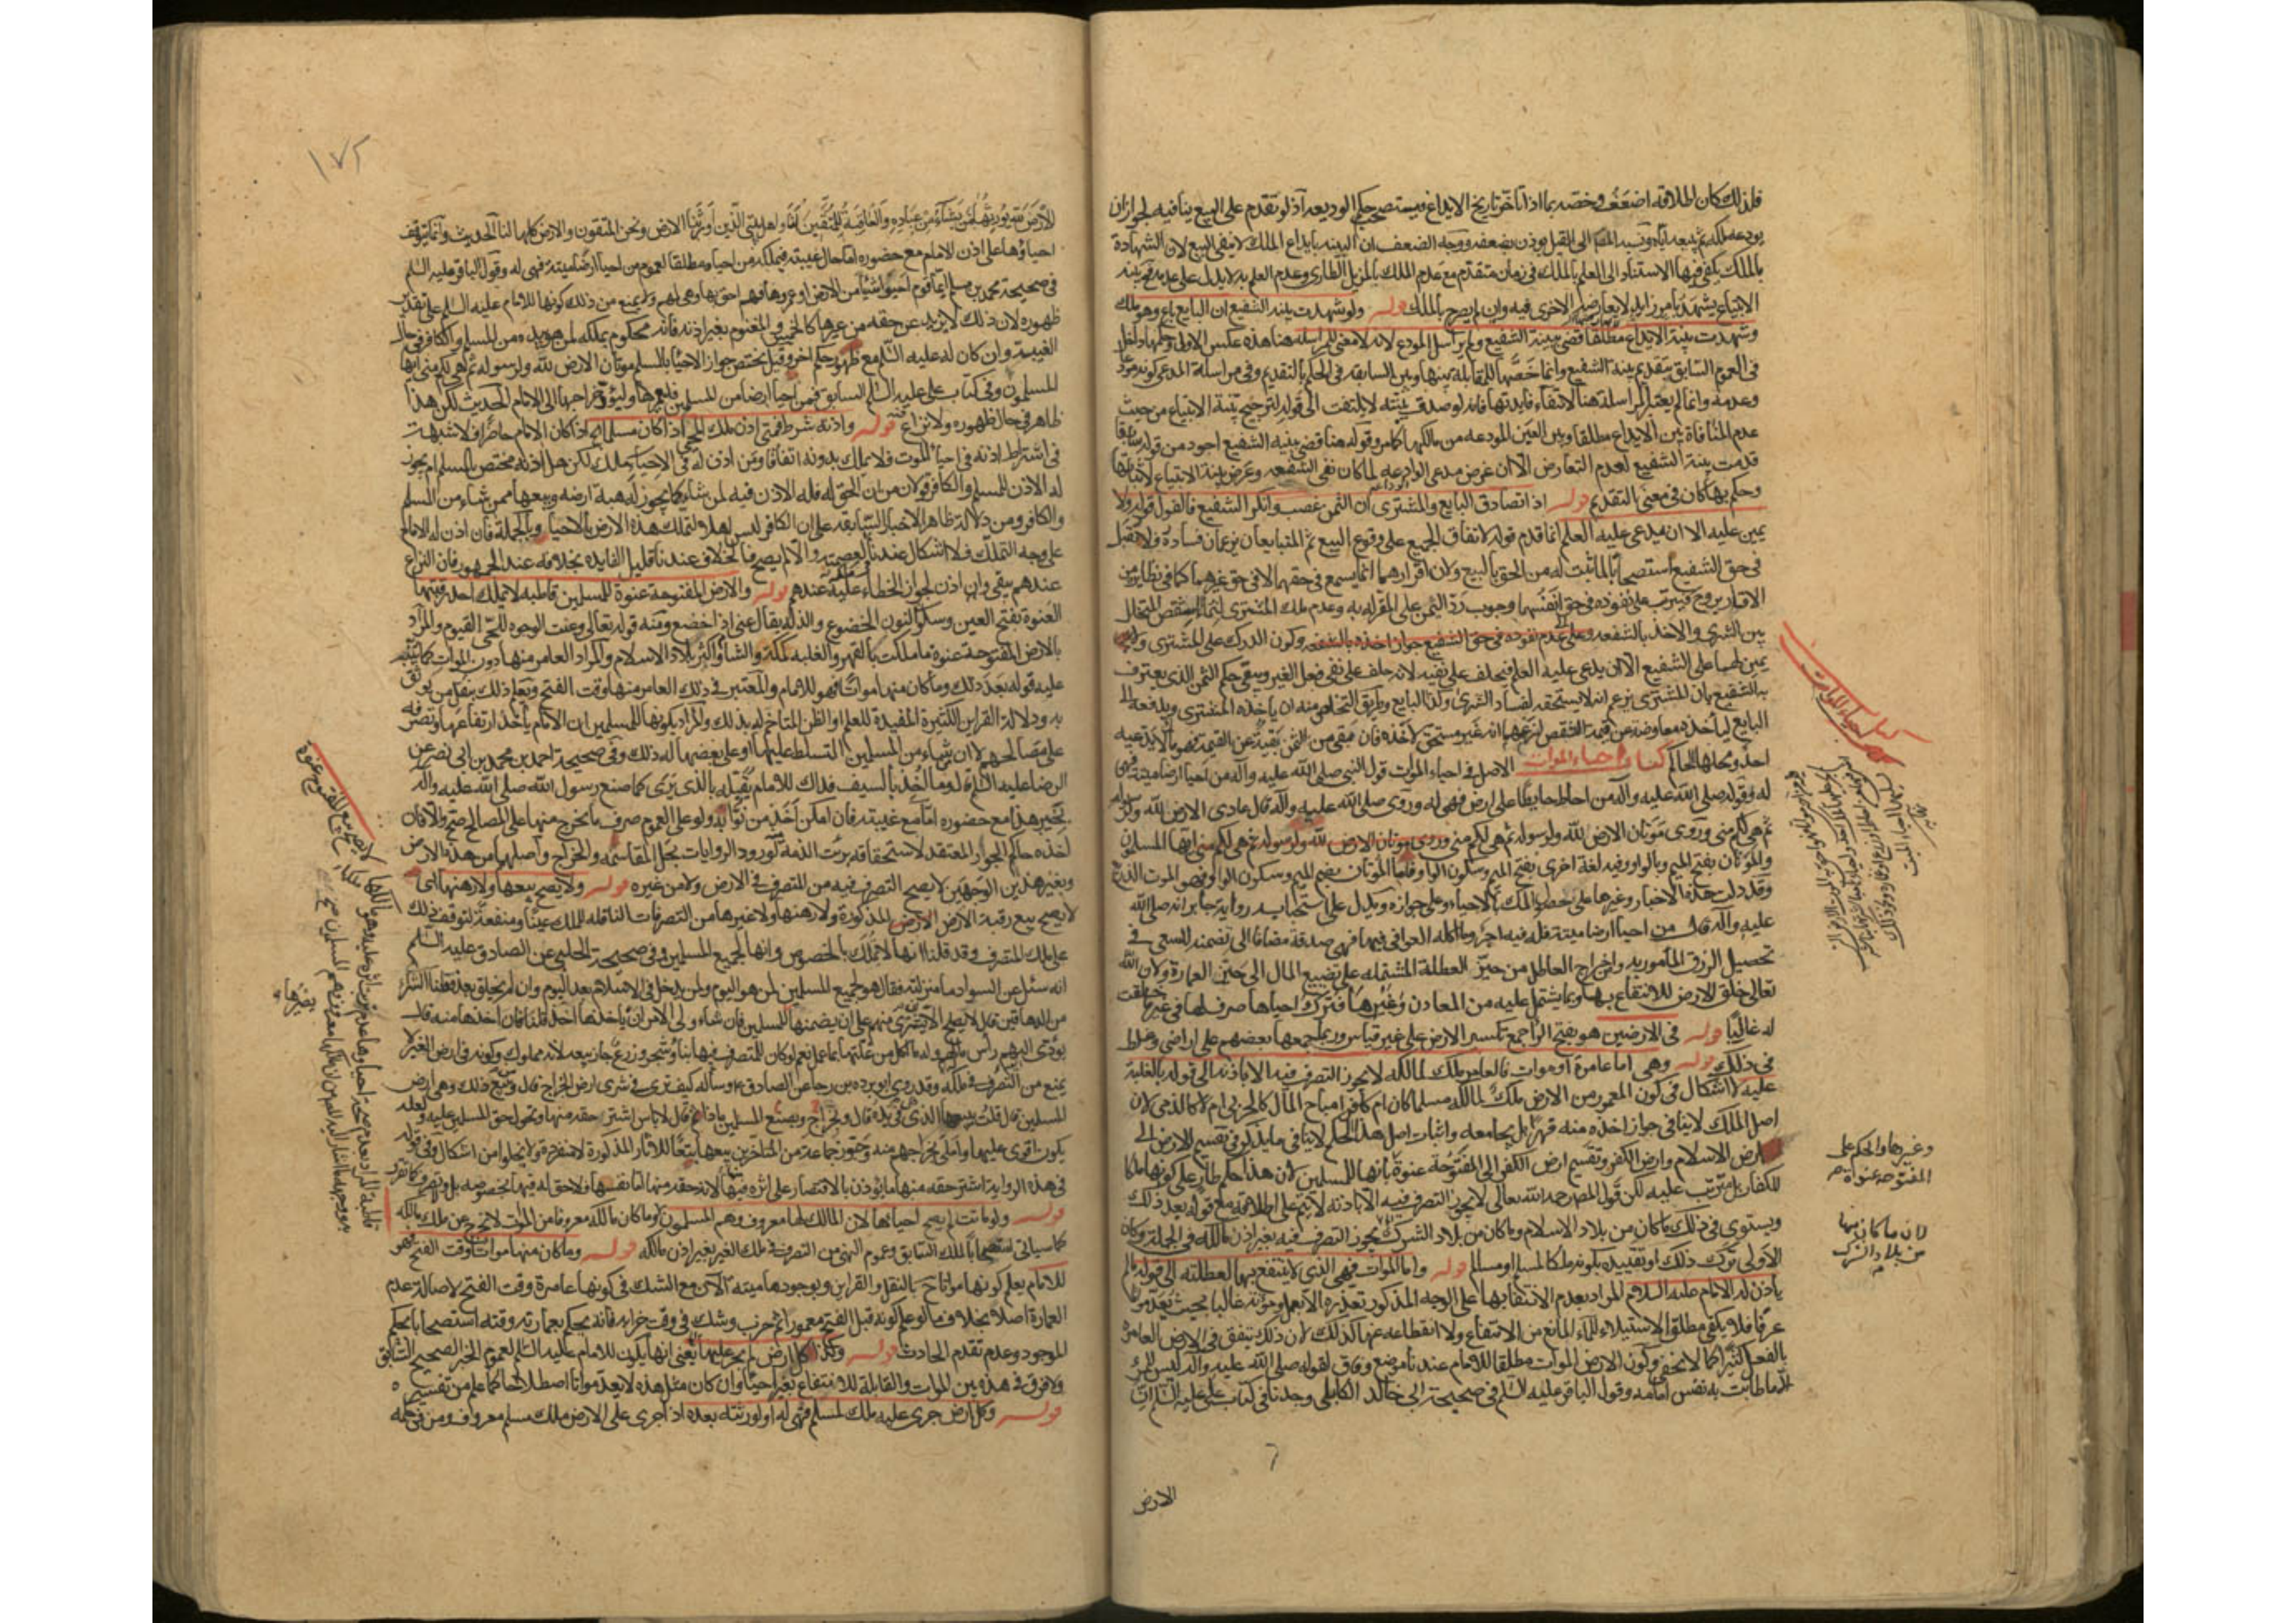 فلذلك كان اطلاقه اضعف وخصه بما اذا تاخر تاريخ الايداع فيستصحب حكم الوديعه اذ لو تقدم على البيع ينافيه لجواز ان
يودعه ملكه ثم يبيعه اياه ونسبة المص الى القيل يوذن بضعفه ووجه الضعف ان البينه بايداع الملك لا ينفي البيع لان الشهادة
بالملك يكفي فيها الاستناد الى العلم بالملك في زمان متقدم مع عدم العلم بالمزيل الطاري وعدم العلم به لا يدل على عدمه
الابتياع يشهد بامر زايد لا يعارضها الاخرى فيه وان لم يصرح بالملك قوله ولو شهدت بينة الشفيع ان البايع باع وهو ملكه
وشهدت بينة الايداع مطلقا قضي ببينة الشفيع ولم يراسل المودع لانه لا معنى للمراسلة هنا هذه عكس الاولى وحكمها داخل
في العموم السابق بتقديم بينة الشفيع وانما خصها للمقابلة بينها وبين السابقه في الحكم بالتقديم وفي مراسلة المدعي كونه مودعا
وعدمه وانما لم يعتبر المراسلة هنا لانتفاء فايدتها فانه لو صدق بينته لا يلتفت الى قوله لترجيح بينة الابتياع من حيث
عدم المنافاة بين الايداع مطلقا وبين العين المودعه من مالكها كما مر وقوله هنا قضي ببينة الشفيع اجود من قوله سابقا
قدمت بينة الشفيع لعدم التعارض الا ان غرض مدعي الوادعه لما كان نفي الشفعه وغرض بينة الابتياع لاثباتها
وحكم بها كان في معنى التقديم قوله اذا تصادق البايع والمشتري ان الثمن غصب وانكر الشفيع فالقول قوله ولا
يمين عليه الا ان يدعى عليه العلم انما قدم قوله لاتفاق الجميع على وقوع البيع ثم المتبايعان يزعمان فساده فلا تقبل
في حق الشفيع استصحابا لما ثبت له من الحق بالبيع ولان اقرارهما انما يسمع في حقهما لا في حق غيرهما كما في نظايره من
الاقارير وح فيترتب على نفوذه في حق انفسهما وجوب رد الثمن على المقر له به وعدم ملك المشتري للشقص المتخلل
بين الشرى والاخذ بالشفعه وعلى عدم نفوذه في حق الشفيع جواز اخذه بالشفعه وكون الدرك على المشتري
يمين لهما على الشفيع الا ان يدعى عليه العلم فيحلف على نفيه لانه حلف على نفي فعل الغير ويبقى حكم الثمن الذي يعترف
به الشفيع فان المشتري يزعم انه لا يستحقه لفساد الشرى وكذا البايع وطريق التخلص منه ان ياخذه المشتري ويدفعه الى
البايع لياخذه معاوضة عن قيمة الشقص لزعمهما انه غير مستحق لاخذه فان بقي من الثمن بقية عن القيمه فهو مال لا يدعيه
احد ومحلها الحاكم كتاب احياء الموات الاصل في احياء الموات قول النبي صلى الله عليه وآله من احيا ارضا ميتة فهي
له وقوله صلى الله عليه وآله من احاط حايطا على ارض فهي له وروي صلى الله عليه وآله قال عادي الارض لله ولرسوله
ثم هي لكم مني وروي موتان الارض لله ولرسوله ثم هي لكم مني ايها المسلمون
والموتان بفتح الميم وبالواو وفيه لغة اخرى بفتح الميم وسكون الواو فاما الموتان بضم الميم وسكون الواو فهو الموت الذريع
وقد دلت هذه الاخبار وغيرها على حصول الملك بالاحياء وعلى جوازه ويدل على استحبابه رواية جابر انه صلى الله
عليه وآله قال من احيا ارضا ميتة فله فيه اجر وما اكله العوافي فيها فهي صدقة مضافا الى تضمنه للسعي في
تحصيل الرزق المامور به واخراج العاطل من حيز العطلة المشتمله على تضييع المال الى حيز العمارة ولان الله
تعالى خلق الارض للانتفاع بها وبما يشتمل عليه من المعادن وغيرها فترك احياها صرف لها في غير ما خلقت
له غالبا قوله في الارضين هو بفتح الراء جمع تكسير الارض على غير قياس وربما جمعها بعضهم على اراضي وغلط
في ذلك قوله وهي اما عامرة او موات فالعامر ملك لمالكه لا يجوز التصرف فيه الا باذنه الى قوله بالغلبة
عليه لا اشكال في كون المعمور من الارض ملك لمالكه مسلما كان ام كافرا مباح المال كالحربي ام لا كالذمي لان
اصل الملك لا ينافي جواز اخذه منه قهرا بل يجامعه واثبات اصل هذا الحكم لا ينافي ما يذكر في تقسيم الارض الى
ارض الاسلام وارض الكفر وتقسيم ارض الكفر الى المفتوحة عنوة بانها للمسلمين لان هذا حكم طار على كونها ملكا
للكفار بل مترتب عليه لكن قول المص رحمه الله تعالى لا يجوز التصرف فيه الا باذنه لا يتم على اطلاقه مع قوله بعد ذلك
ويستوي في ذلك ما كان من بلاد الاسلام وما كان من بلاد الشرك يجوز التصرف فيه بغير اذن مالكه في الجملة وكان
الاولى ترك ذلك او تقييده بكونه ملكا لمسلم او مسالم قوله واما الموات فهي الذي لا ينتفع بها لعطلته الى قوله ما لم
ياذن له الامام عليه السلام المراد بعدم الانتفاع بها على الوجه المذكور تعذره الا بعمل ومؤنة غالبا بحيث يعد مواتا
عرفا فلا يكفي مطلق الاستيلاء للماء المانع من الانتفاع ولا انقطاعه عنها كذلك لان ذلك يتفق في الارض العامرة
بالفعل كثيرا كما لا يخفى وكون الارض الموات مطلقا للامام عندنا موضع وفاق لقوله صلى الله عليه وآله ليس للمرء
الا ما طابت به نفس امامه وقول الباقر عليه السلم في صحيحة ابي خالد الكابلي وجدنا في كتاب علي عليه السلم ان
الارض
كتاب احياء الموات
وغيرها والحكم على
المفتوحه عنوة
لان ما كان منها
من بلاد الشرك
١٧٢
الارض لله يورثها من يشاء من عباده والعاقبة للمتقين انا واهل بيتي الذين اورثنا الارض ونحن المتقون والارض كلها لنا الحديث وانما يتوقف
احياؤها على اذن الامام مع حضوره اما حال غيبته فيملكه من احياه مطلقا لعموم من احيا ارضا ميتة فهي له وقول الباقر عليه السلم
في صحيحة محمد بن مسلم ايما قوم احيوا شيئا من الارض او عمروها فهم احق بها وهي لهم ولا يمنع من ذلك كونها للامام عليه السلم على تقدير
ظهوره لان ذلك لا يزيد عن حقه من غيرها كالخمس والمغنوم بغير اذنه فانه محكوم بملكه لمن هو بيده من المسلم والكافر في حال
الغيبة وان كان له عليه السلم مع ظهوره حكم اخر وقيل يختص جواز الاحيا بالمسلم موتان الارض لله ولرسوله ثم هي لكم مني ايها
المسلمون وفي كتاب علي عليه السلم السابق فمن احيا ارضا من المسلمين فليعمرها وليؤد خراجها الى الامام الحديث لكن هذا
ظاهر في حال ظهوره ولا نزاع فيه قوله واذنه شرط فمتى اذن ملك المحيي اذا كان مسلما اذا كان الامام حاضرا فلا شبهة
في اشتراط اذنه في احياء الموت فلا يملك بدونه اتفاقا ومن اذن له في الاحياء ملك لكن هل اذنه مختص بالمسلم ام يجوز
له الاذن للمسلم والكافر قولان من ان الحق له فله الاذن فيه لمن شاء كما يجوز له هبة ارضه وبيعها ممن شاء من المسلم
والكافر ومن دلالة ظاهر الاخبار السابقه على ان الكافر ليس اهلا لتملك هذه الارض بالاحياء وبالجملة فان اذن له الامام
على وجه التملك فلا اشكال عندنا لعصمته والا لم يصح فالخلاف عندنا قليل الفايده بخلافه عند الجمهور فان النزاع
عندهم يبقى وان اذن لجواز الخطاء عليه عندهم قوله والارض المفتوحة عنوة للمسلمين قاطبه لا يملك احد رقبتها
العنوة بفتح العين وسكون النون الخضوع والذلة يقال عنى اذا خضع ومنه قوله تعالى وعنت الوجوه للحي القيوم والمراد
بالارض المفتوحة عنوة ما ملكت بالقهر والغلبه كمكة والشام واكثر بلاد الاسلام والمراد العامر منها دون الموات كما ينبه
عليه قوله بعد ذلك وما كان منها مواتا فهو للامام والمعتبر في ذلك العامر منها وقت الفتح ويعلم ذلك بنقل من يوثق
به ودلالة القراين الكثيرة المفيدة للعلم او الظن المتاخم له بذلك والمراد بكونها للمسلمين ان الامام ياخذ ارتفاعها ويصرفه
على مصالحهم لا ان من شاء من المسلمين التسلط عليها او على بعضها له ذلك وفي صحيحة احمد بن محمد بن ابي نصر عن
الرضا عليه السلم قال وما اخذ بالسيف فذاك للامام يقبله بالذي يرى كما صنع رسول الله صلى الله عليه وآله
بخيبر هذا مع حضوره اما مع غيبته فان امكن اخذ من نوابه ولو على العموم صرف ما يخرج منها على المصالح صح والا فان
اخذه حاكم الجور المعتقد لاستحقاقه برئت الذمة لورود الروايات بحل المقاسمه والخراج واصلهما من هذه الارض
وبغير هذين الوجهين لا يصح التصرف فيه من المتصرف في الارض ولا من غيره قوله ولا يصح بيعها ولا رهنها
لا يصح بيع رقبة الارض المذكورة ولا رهنها ولا غيرها من التصرفات الناقله للملك عينا ومنفعة لتوقف ذلك
على ملك المتصرف وقد قلنا انها لا تملك بالخصوص وانها لجميع المسلمين وفي صحيحة الحلبي عن الصادق عليه السلم
انه سئل عن السواد ما منزلته فقال هو لجميع المسلمين لمن هو اليوم ولمن يدخل في الاسلام بعد اليوم ولمن لم يخلق بعد فقلنا الشراء
من الدهاقين قال لا يصلح الا ان يشتري منهم على ان يصيرها للمسلمين فان شاء ولي الامر ان ياخذها اخذ قلنا فان اخذها منه قال
يؤدي اليهم راس ماله وله ما اكل من غلتها بما عمل نعم لو كان للمتصرف فيها بناء وشجر وزرع جاز بيعه لانه مملوك وكونه في ارض الغير لا
يمنع من التصرف في ملكه وقد روى ابو برده بن رجا عن الصادق وساله كيف ترى في شرى ارض الخراج قال ومن يبيع ذلك وهي ارض
المسلمين قال قلت يبيعها الذي هي في يده قال ويصنع بخراج المسلمين ماذا ثم قال لا باس اشترى حقه منها ويحول حق المسلمين عليه ولعله
يكون اقوى عليها واملى بخراجهم منه وجوز جماعة من المتاخرين بيعها تبعا للاثار المذكورة لا منفردة ولا يخلوا من اشكال وفي قوله
في هذه الرواية اشتر حقه منها ما يؤذن بالاقتصار على اثره فيها لانه حقه منها اما نفسها فلا حق له فيها بخصوصه بل ولهم كما تقرر
قوله ولو ماتت لم يصح احياؤها لان المالك لها معروف وهم المسلمون وما كان مالكه معروفا من الموات لا يخرج عن ملك مالكه
كما سياتي استصحابا للملك السابق وعموم النهي من التصرف في ملك الغير بغير اذن مالكه قوله وما كان منها مواتا وقت الفتح فهو
للامام يعلم كونها مواتا ح بالنقل والقراين وبوجودها ميته الان مع الشك في كونها عامرة وقت الفتح لاصالة عدم
العمارة اصلا بخلاف ما لو علم كونه قبل الفتح معمورا ثم خرب وشك في وقت خرابه فانه يحكم بعمارته وقته استصحابا لحكم
الموجود وعدم تقدم الحادث قوله وكذا كل ارض لم يجر عليها يعني انها يكون للامام عليه السلم لعموم الخبر الصحيح السابق
ولا فرق في هذه بين الموات والقابلة للانتفاع بغير احياء وان كان مثل هذه لا يعد مواتا اصطلاحا كما علم من تفسيره
قوله وكل ارض جرى عليه ملك لمسلم فهي له او لورثته بعده اذا جرى على الارض ملك مسلم معروف ومن في حكمه
بغيرها